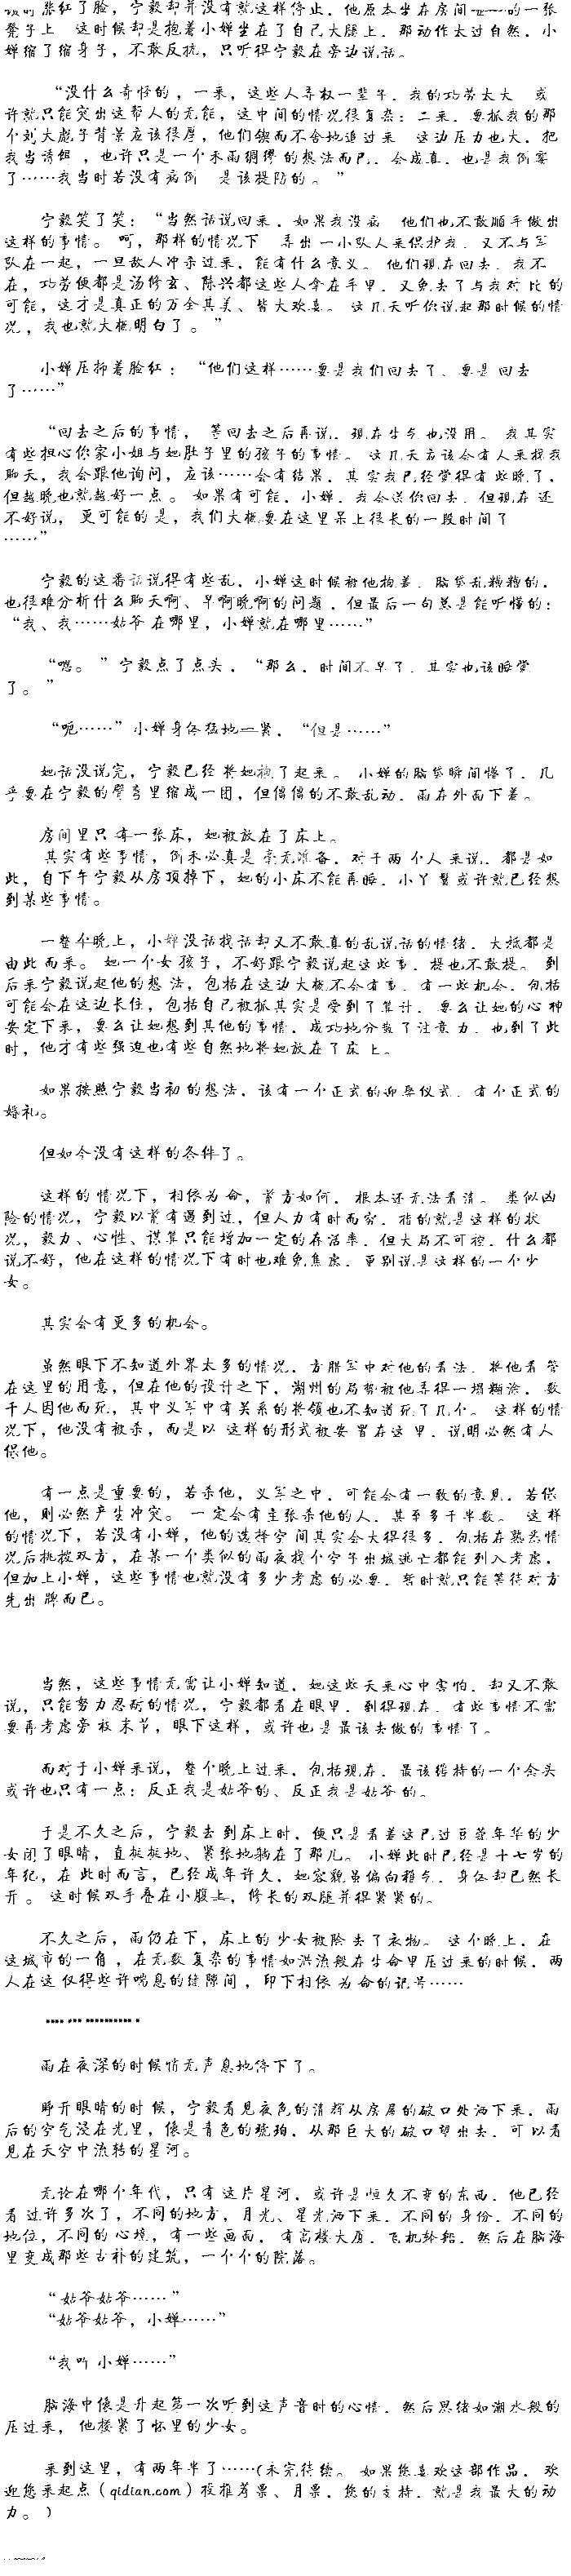 红了脸，宁毅却并没有就这样停止，他原本坐在房间的一张
凳子上，这时候却是抱着小婵坐在了自己大腿上，那动作太过自然，小
婵缩了缩身子，不敢反抗，只听得宁毅在旁边说话。
“没什么奇怪的，一来，这些人弄权一辈子，我的功劳太大，或
许就只能突出这帮人的无能，这中间的情况很复杂；二来，要抓我的那
个刘大彪子背景应该很厚，他们锲而不舍地追过来，这边压力也大，把
我当诱饵，也许只是一个未雨绸缪的想法而已，会成真，也是我倒霉
了……我当时若没有病倒，是该提防的。”
宁毅笑了笑：“当然话说回来，如果我没病，他们也不敢顺手做出
这样的事情。呵，那样的情况下，弄出一小队人来保护我，又不与军
队在一起，一旦敌人冲杀过来，能有什么意义。他们现在回去，我不
在，功劳便都是汤修玄、陈兴都这些人拿在手里，又免去了与我对比的
可能，这才是真正的万全其美、皆大欢喜。这几天听你说起那时候的情
况，我也就大概明白了。”
小婵压抑着脸红：“他们这样……要是我们回去了、要是回去
了……”
“回去之后的事情，等回去之后再说，现在生气也没用。我其实
有些担心你家小姐与她肚子里的孩子的事情。这几天应该会有人来找我
聊天，我会跟他询问，应该……会有结果，其实我已经觉得有些晚了，
但越晚也就越好一点。如果有可能，小婵，我会送你回去，但现在还
不好说，更可能的是，我们大概要在这里呆上很长的一段时间了
……”
宁毅的这番话说得有些乱，小婵这时候被他抱着，脑袋乱糟糟的，
也很难分析什么聊天啊、早啊晚啊的问题，但最后一句总是能听懂的：
“我、我……姑爷在哪里，小婵就在哪里……”
“嗯。”宁毅点了点头，“那么，时间不早了，其实也该睡觉
了。”
“呃……”小婵身体猛地一紧，“但是……”
她话没说完，宁毅已经将她抱了起来。小婵的脑袋瞬间懵了，几
乎要在宁毅的臂弯里缩成一团，但偏偏的不敢乱动，雨在外面下着。
房间里只有一张床，她被放在了床上。
其实有些事情，倒未必真是毫无准备，对于两个人来说，都是如
此，自下午宁毅从房顶掉下，她的小床不能再睡，小丫鬟或许就已经想
到某些事情。
一整个晚上，小婵没话找话却又不敢真的乱说话的情绪，大抵都是
由此而来。她一个女孩子，不好跟宁毅说起这些事，提也不敢提。到
后来宁毅说起他的想法，包括在这边大概不会有事，有一些机会，包括
可能会在这边长住，包括自己被抓其实是受到了算计，要么让她的心神
安定下来，要么让她想到其他的事情，成功地分散了注意力，也到了此
时，他才有些强迫也有些自然地将她放在了床上。
如果按照宁毅当初的想法，该有一个正式的迎娶仪式，有个正式的
婚礼。
但如今没有这样的条件了。
这样的情况下，相依为命，前方如何，根本还无法看清。类似凶
险的情况，宁毅以前有遇到过，但人力有时而穷，指的就是这样的状
况，毅力、心性、谋算只能增加一定的存活率，但大局不可控，什么都
说不好，他在这样的情况下有时也难免焦虑，更别说是这样的一个少
女。
其实会有更多的机会。
虽然眼下不知道外界太多的情况，方腊军中对他的看法，将他看管
在这里的用意，但在他的设计之下，湖州的局势被他弄得一塌糊涂，数
千人因他而死，其中义军中有关系的将领也不知道死了几个。这样的情
况下，他没有被杀，而是以这样的形式被安置在这里，说明必然有人
保他。
有一点是重要的，若杀他，义军之中，可能会有一致的意见，若保
他，则必然产生冲突。一定会有主张杀他的人，甚至多于半数。这样
的情况下，若没有小婵，他的选择空间其实会大得很多，包括在熟悉情
况后挑拨双方，在某一个类似的雨夜找个空子出城逃亡都能列入考虑，
但加上小婵，这些事情也就没有多少考虑的必要，暂时就只能等待对方
先出牌而已。
当然，这些事情无需让小婵知道，她这些天来心中害怕，却又不敢
说，只能努力忍耐的情况，宁毅都看在眼里，到得现在，有些事情不需
要再考虑旁枝末节，眼下这样，或许也是最该去做的事情了。
而对于小婵来说，整个晚上过来，包括现在，最该维持的一个念头
或许也只有一点：反正我是姑爷的、反正我是姑爷的。
于是不久之后，宁毅去到床上时，便只是看着这已过豆蔻年华的少
女闭了眼睛，直挺挺地、紧张地躺在了那儿。小婵此时已经是十七岁的
年纪，在此时而言，已经成年许久，她容貌虽偏向稚气，身体却已然长
开。这时候双手叠在小腹上，修长的双腿并得紧紧的。
不久之后，雨仍在下，床上的少女被除去了衣物。这个晚上，在
这城市的一角，在无数复杂的事情如洪流般在生命里压过来的时候，两
人在这仅得些许喘息的缝隙间，印下相依为命的记号……
…………………
雨在夜深的时候悄无声息地停下了。
睁开眼睛的时候，宁毅看见夜色的清辉从房屋的破口处洒下来，雨
后的空气浸在光里，像是青色的琥珀，从那巨大的破口望出去，可以看
见在天空中流转的星河。
无论在哪个年代，只有这片星河，或许是恒久不变的东西，他已经
看过许多次了，不同的地方，月光、星光洒下来，不同的身份，不同的
地位，不同的心境，有一些画面，有高楼大厦、飞机轮船，然后在脑海
里变成那些古朴的建筑，一个个的院落。
“姑爷姑爷……”
“姑爷姑爷，小婵……”
“我叫小婵……”
脑海中像是升起第一次听到这声音时的心情，然后思绪如潮水般的
压过来，他搂紧了怀里的少女。
来到这里，有两年半了……(未完待续。如果您喜欢这部作品，欢
迎您来起点（qidian.com）投推荐票、月票，您的支持，就是我最大的动
力。）